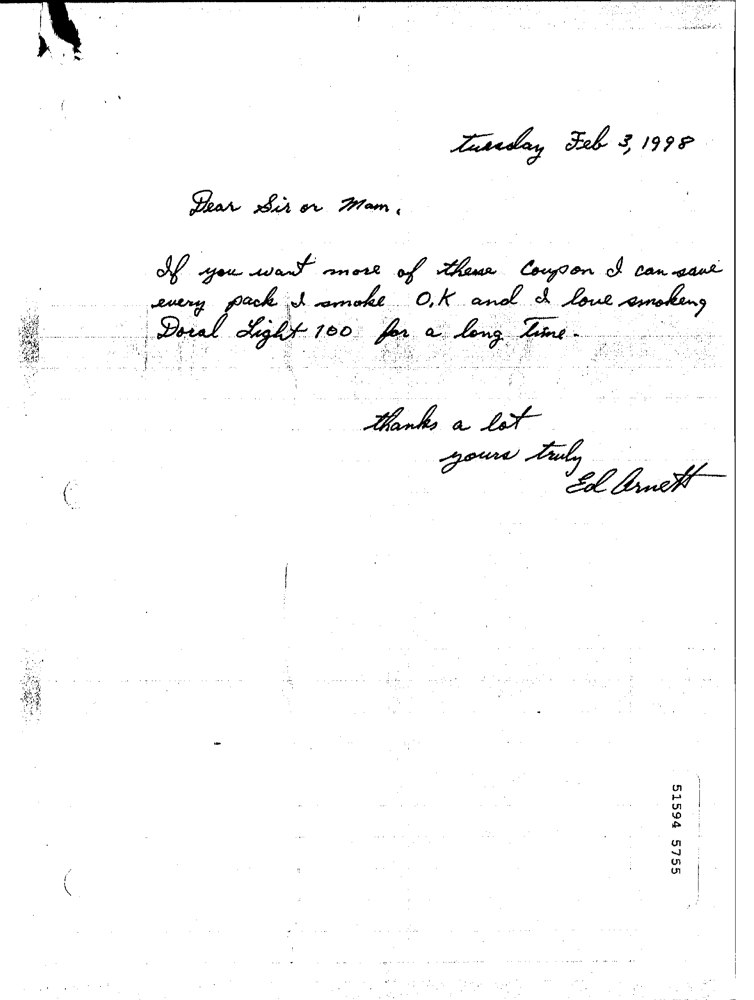 tuesday Feb 3, 1998
Dear Sir or Mam,
If you want more of these Coupon I can save
every pack I smoke O.K and I love smokeng
Doral Light 100 for a long time.
thanks a lot
yours truly
Ed Arnett
51594 5755